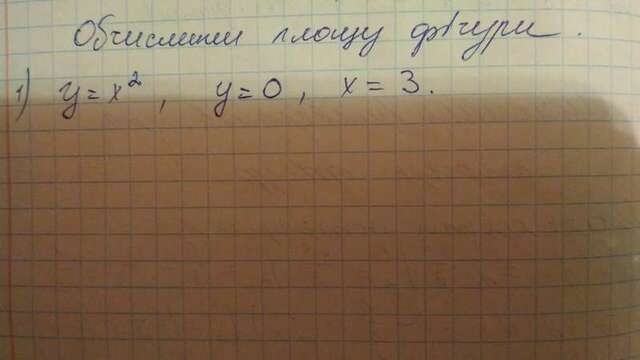 Обчислити площу фігури.
1) y=x², y=0, x=3.